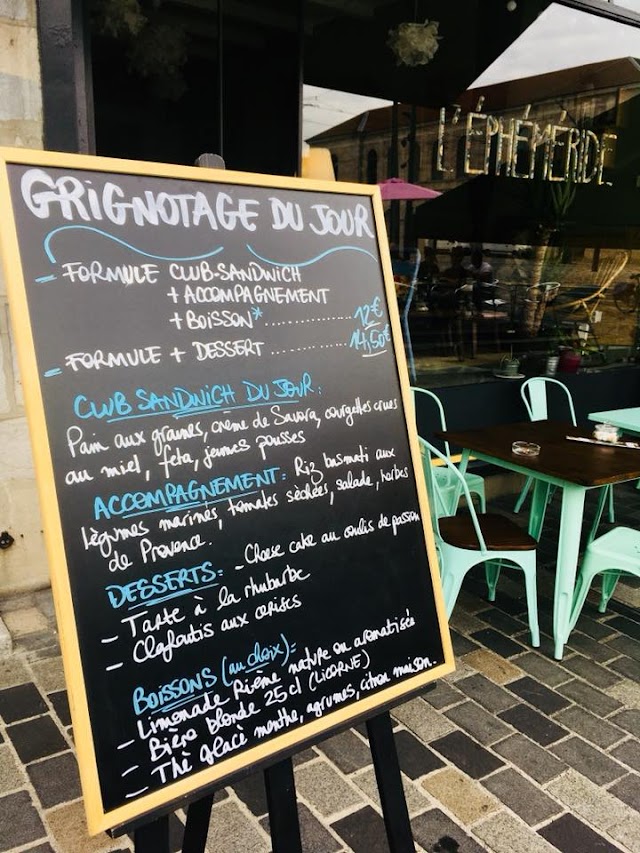 L'ÉPHÉMÉRIDE
GRIGNOTAGE DU JOUR
- FORMULE CLUB-SANDWICH
+ ACCOMPAGNEMENT
+ BOISSON* .................. 12€
- FORMULE + DESSERT ........... 14,50€
CLUB SANDWICH DU JOUR :
Pain aux graines, crème de Savora, courgettes crues
au miel, feta, jeunes pousses
ACCOMPAGNEMENT : Riz basmati aux
légumes marinés, tomates séchées, salade, herbes
de Provence.
DESSERTS : - Cheese cake au coulis de passion
- Tarte à la rhubarbe
- Clafoutis aux cerises
BOISSONS (au choix) :
- Limonade Rième nature ou aromatisée
- Bière blonde 25cl (LICORNE)
- Thé glacé menthe, agrumes, citron maison.